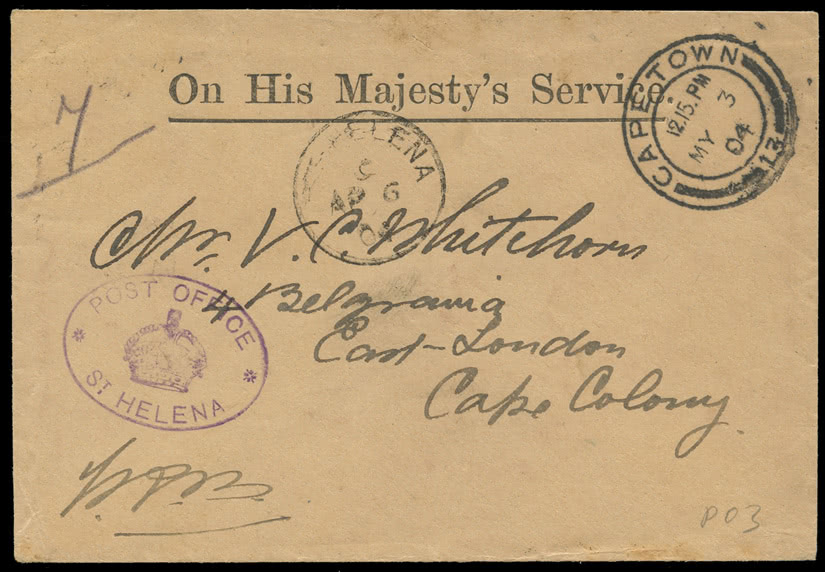 On His Majesty's Service.
CAPE TOWN
12.15.PM
MY 3
04
13
7
HELENA
S
AP 6
Mr. V. C. Whitehorn
4 Belgravia
East-London
Cape Colony.
POST OFFICE
ST HELENA
P03